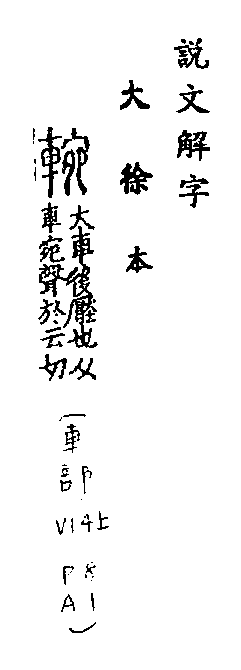 説文解字
大徐本
輐大車後壓也从
車宛聲於云切
(車部
V14上
P8
A1)